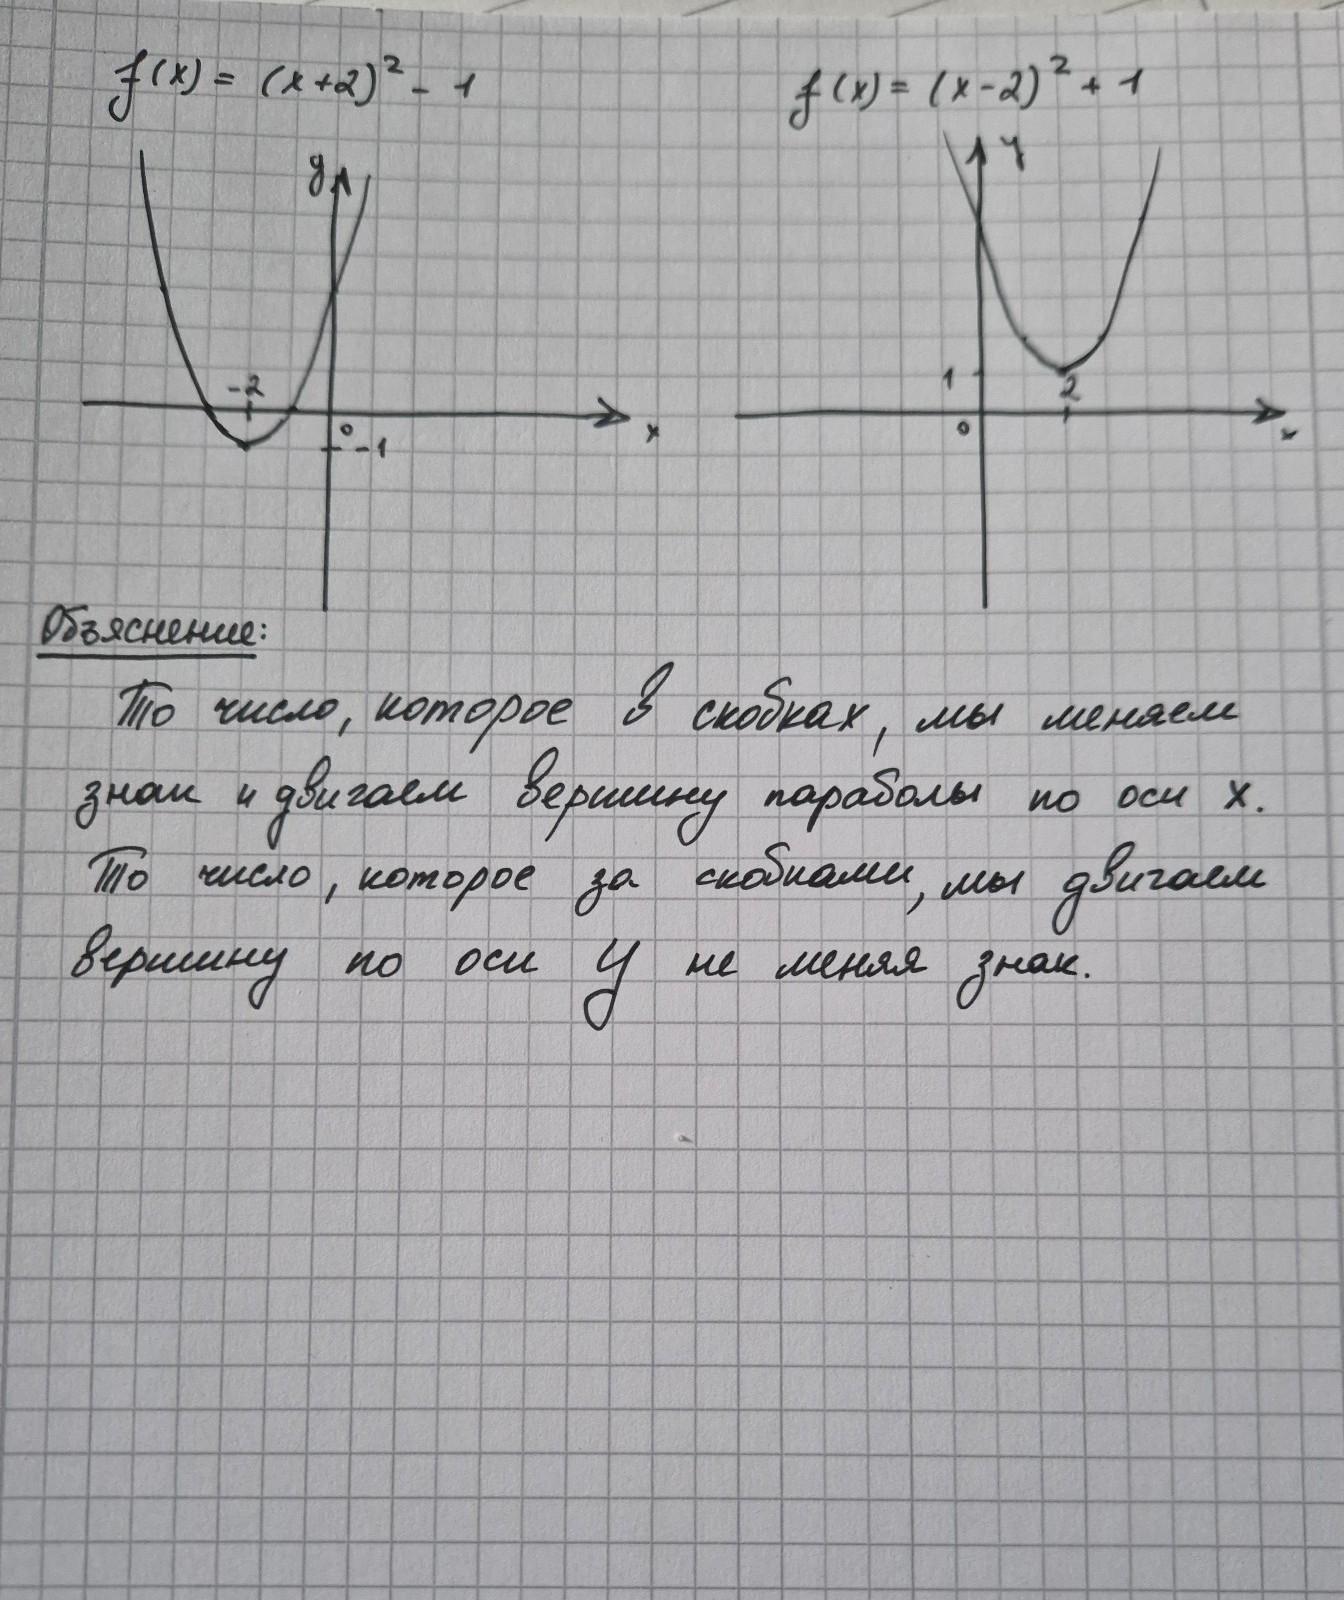 f(x) = (x+2)² - 1
f(x) = (x-2)² + 1
y
-2
0
-1
x
y
1
2
0
x
Объяснение:
То число, которое в скобках, мы меняем
знак и двигаем вершину параболы по оси x.
То число, которое за скобками, мы двигаем
вершину по оси y не меняя знак.